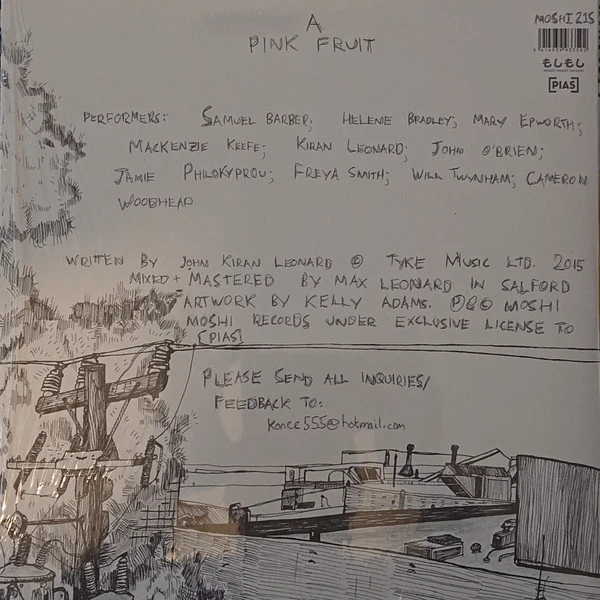 A
PINK FRUIT
MOSHI 215
もしもし
[PIAS]
PERFORMERS: SAMUEL BARBER; HELENE BRADLEY; MARY EPWORTH;
MACKENZIE KEEFE; KIRAN LEONARD; JOHN O'BRIEN;
JAMIE PHILOKYPROU; FREYA SMITH; WILL TWYNHAM; CAMERON
WOODHEAD
WRITTEN BY JOHN KIRAN LEONARD © TYKE MUSIC LTD. 2015
MIXED + MASTERED BY MAX LEONARD IN SALFORD
ARTWORK BY KELLY ADAMS. ℗ & © MOSHI
MOSHI RECORDS UNDER EXCLUSIVE LICENSE TO
[PIAS]
PLEASE SEND ALL INQUIRIES/
FEEDBACK TO:
Konce555@hotmail.com